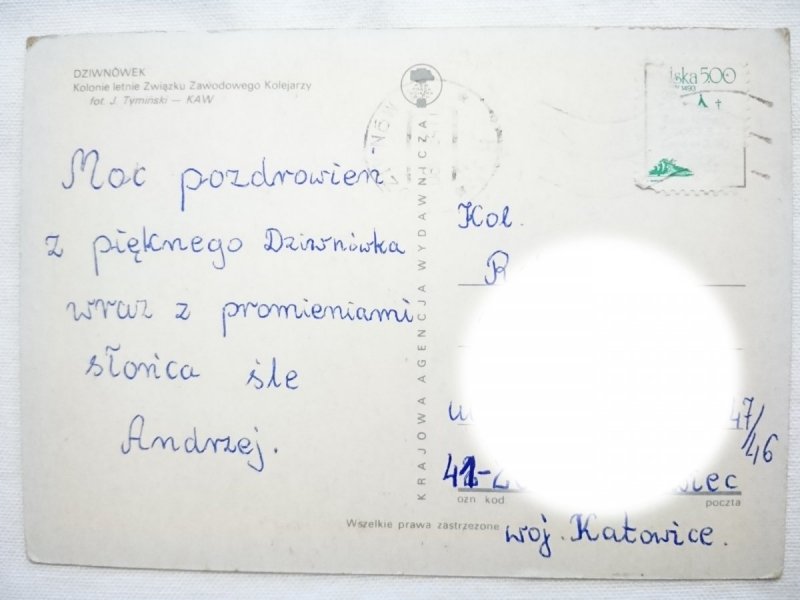 DZIWNÓWEK
Kolonie letnie Związku Zawodowego Kolejarzy
fot. J. Tymiński — KAW
Moc pozdrowień
z pięknego Dziwnówka
wraz z promieniami
słońca śle
Andrzej.
KRAJOWA AGENCJA WYDAWNICZA
lska 500
1493
Kol.
R
47/46
41-2
iec
ozn kod
poczta
Wszelkie prawa zastrzeżone
woj. Katowice.